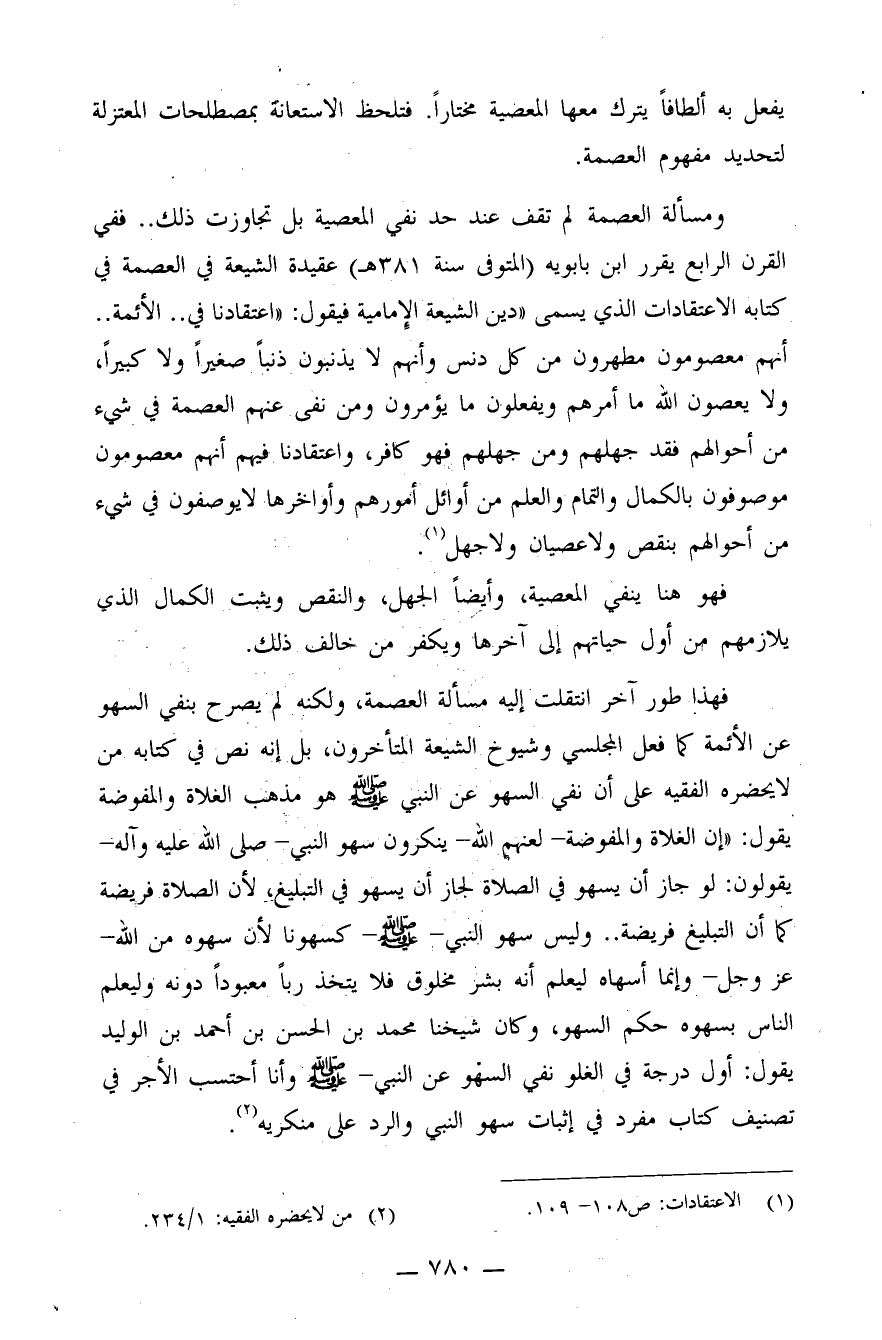 يفعل به ألطافاً يترك معها المعصية مختاراً. فتلحظ الاستعانة بمصطلحات المعتزلة
لتحديد مفهوم العصمة.
ومسألة العصمة لم تقف عند حد نفي المعصية بل تجاوزت ذلك.. ففي
القرن الرابع يقرر ابن بابويه (المتوفى سنة ٣٨١هـ) عقيدة الشيعة في العصمة في
كتابه الاعتقادات الذي يسمى «دين الشيعة الإمامية فيقول: «اعتقادنا في.. الأئمة..
أنهم معصومون مطهرون من كل دنس وأنهم لا يذنبون ذنباً صغيراً ولا كبيراً،
ولا يعصون الله ما أمرهم ويفعلون ما يؤمرون ومن نفى عنهم العصمة في شيء
من أحوالهم فقد جهلهم ومن جهلهم فهو كافر، واعتقادنا فيهم أنهم معصومون
موصوفون بالكمال والتمام والعلم من أوائل أمورهم وأواخرها لايوصفون في شيء
من أحوالهم بنقص ولاعصيان ولاجهل(١).
فهو هنا ينفي المعصية، وأيضاً الجهل، والنقص ويثبت الكمال الذي
يلازمهم من أول حياتهم إلى آخرها ويكفر من خالف ذلك.
فهذا طور آخر انتقلت إليه مسألة العصمة، ولكنه لم يصرح بنفي السهو
عن الأئمة كما فعل المجلسي وشيوخ الشيعة المتأخرون، بل إنه نص في كتابه من
لايحضره الفقيه على أن نفي السهو عن النبي ﷺ هو مذهب الغلاة والمفوضة
يقول: «إن الغلاة والمفوضة– لعنهم الله– ينكرون سهو النبي– صلى الله عليه وآله–
يقولون: لو جاز أن يسهو في الصلاة لجاز أن يسهو في التبليغ، لأن الصلاة فريضة
كما أن التبليغ فريضة.. وليس سهو النبي– ﷺ– كسهونا لأن سهوه من الله–
عز وجل– وإنما أسهاه ليعلم أنه بشر مخلوق فلا يتخذ رباً معبوداً دونه وليعلم
الناس بسهوه حكم السهو، وكان شيخنا محمد بن الحسن بن أحمد بن الوليد
يقول: أول درجة في الغلو نفي السهو عن النبي– ﷺ وأنا أحتسب الأجر في
تصنيف كتاب مفرد في إثبات سهو النبي والرد على منكريه(٢).
(١) الاعتقادات: ص١٠٨– ١٠٩.
(٢) من لايحضره الفقيه: ٢٣٤/١.
— ٧٨٠ —